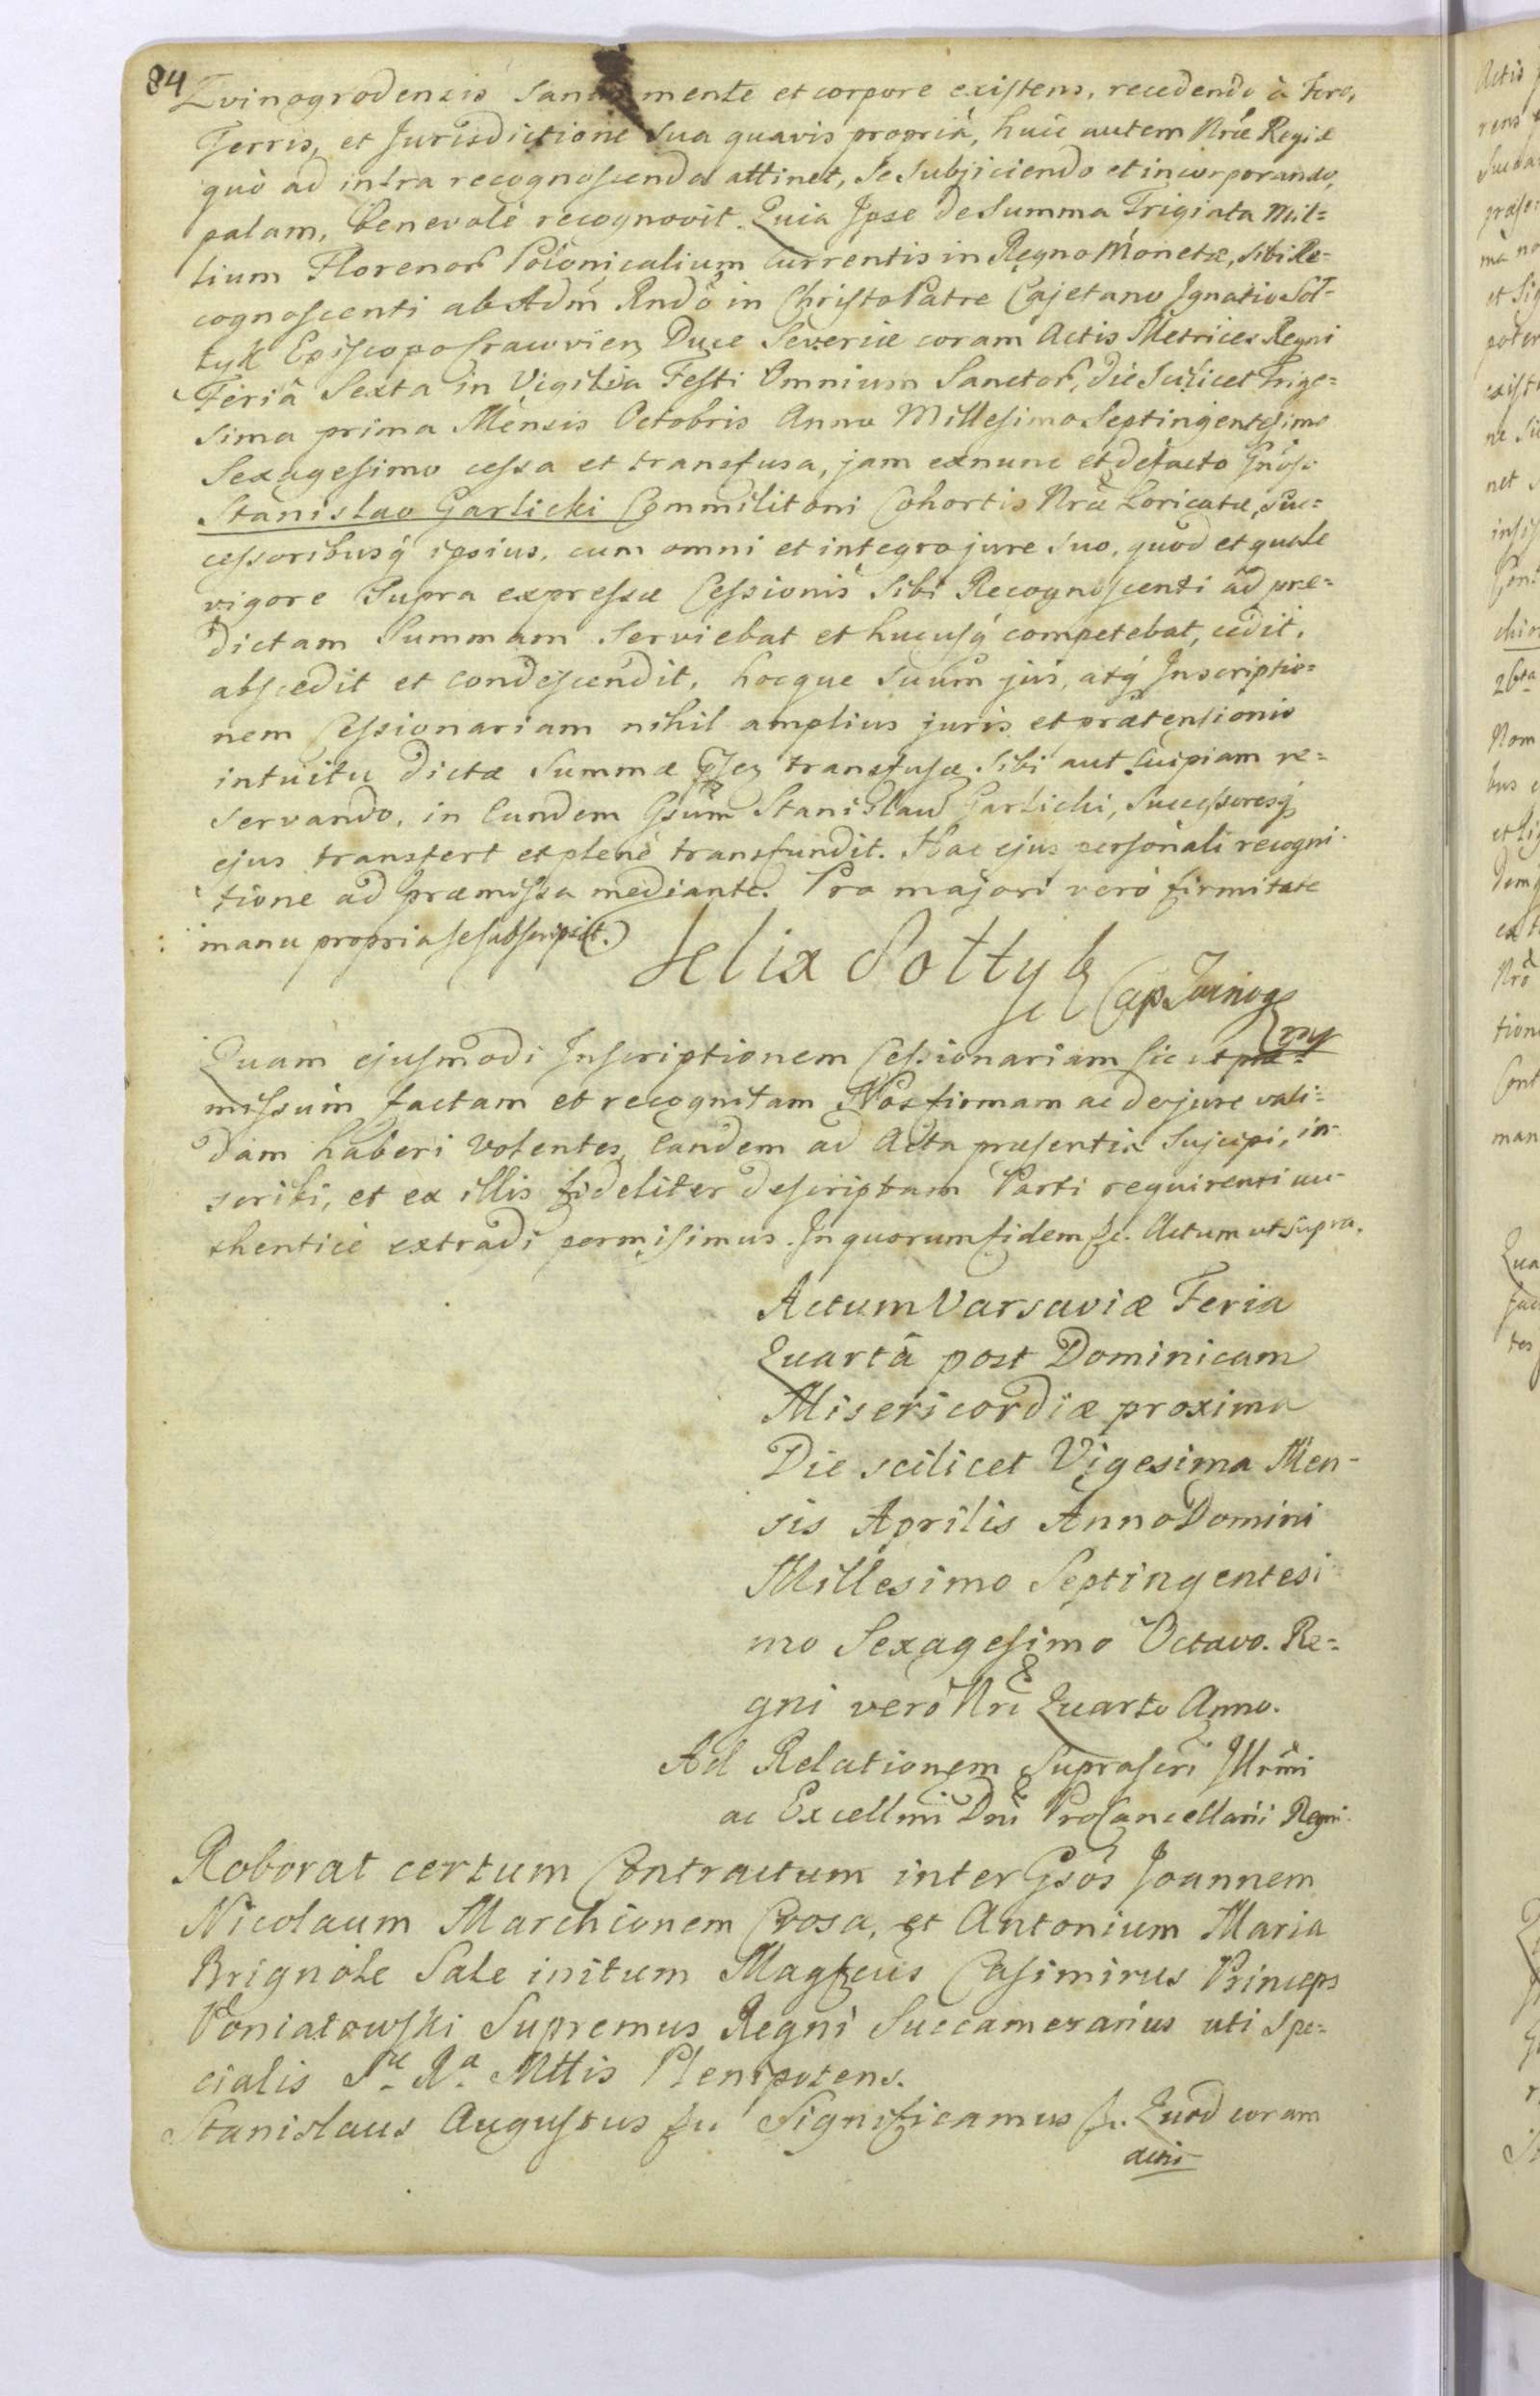 84
Zvinogrodensis Sanus mente et corpore existens, recedendo à Foro,
Terris, et Jurisdictione Sua quavis propriâ, huic autem Nrae Regiae
quò ad intra recognoscenda attinet, Se Subjiciendo et incorporando,
palam, benevolè recognovit. Quia Ipse de Summa Triginta Mil=
lium Florenor Polonicalium Currentis in Regno Monetæ, Sibi Re=
cognoscenti ab Adm Rndo in Christo Patre Cajetano Ignatio Sol=
tyk Episcopo Cracovien Duce Severiæ coram Actis Metrices Regni
Feriâ Sexta in Vigilia Festi Omnium Sanctor, die Scilicet Trige=
sima prima Mensis Octobris Anno Millesimo Septingentesimo
Sexagesimo cessa et transfusa, jam exnunc et defacto Gnoso
Stanislao Garlicki Commilitoni Cohortis Nrae Loricatæ, Suc=
cessoribusq ipsius, cum omni et integro jure Suo, quod et quale
vigore Supra expressæ Cessionis Sibi Recognoscenti ad præ=
dictam Summam Serviebat et hucusq competebat, cedit,
abscedit et condescendit, hocque Suum jus, atq Inscriptio=
nem Cessionariam nihil amplius juris et prætensionis
intuitu dictæ Summæ transfusæ Sibi aut Cuipiam re=
servando, in Eundem Gsum Stanislaum Garlicki, Successoresq
ejus transfert et plenè transfundit. Hac ejus personali recogni=
tione ad præmissa mediante. Pro majori verò firmitate
manu propria se subscripsit.
Felix Soltyk Cap Zwinog
mp
Quam ejusmodi Inscriptionem Cessionariam sic ut præ=
missum factam et recognitam Nos firmam ac de jure vali=
dam haberi volentes, Eandem ad Acta præsentia Suscipi, in=
scribi, et ex illis fideliter descriptam Parti requirenti au=
thenticè extradi permisimus. In quorum fidem &c. Actum ut supra.
Actum Varsaviæ Feria
Quartâ post Dominicam
Misericordiæ proxima
Die scilicet Vigesima Men=
sis Aprilis Anno Domini
Millesimo Septingentesi=
mo Sexagesimo Octavo. Re=
gni verò Nri Quarto Anno.
Ad Relationem Suprascri Illrmi
ac Excellmi Dni ProCancellarii Regni.
Roborat certum Contractum inter Gsos Joannem
Nicolaum Marchionem Crosa, et Antonium Maria
Brignole Sale initum Magfcus Casimirus Princeps
Poniatowski Supremus Regni Succamerarius uti Spe=
cialis Sae Rae Mttis Plenipotens.
Stanislaus Augustus &c Significamus &c. Quod coram
actis